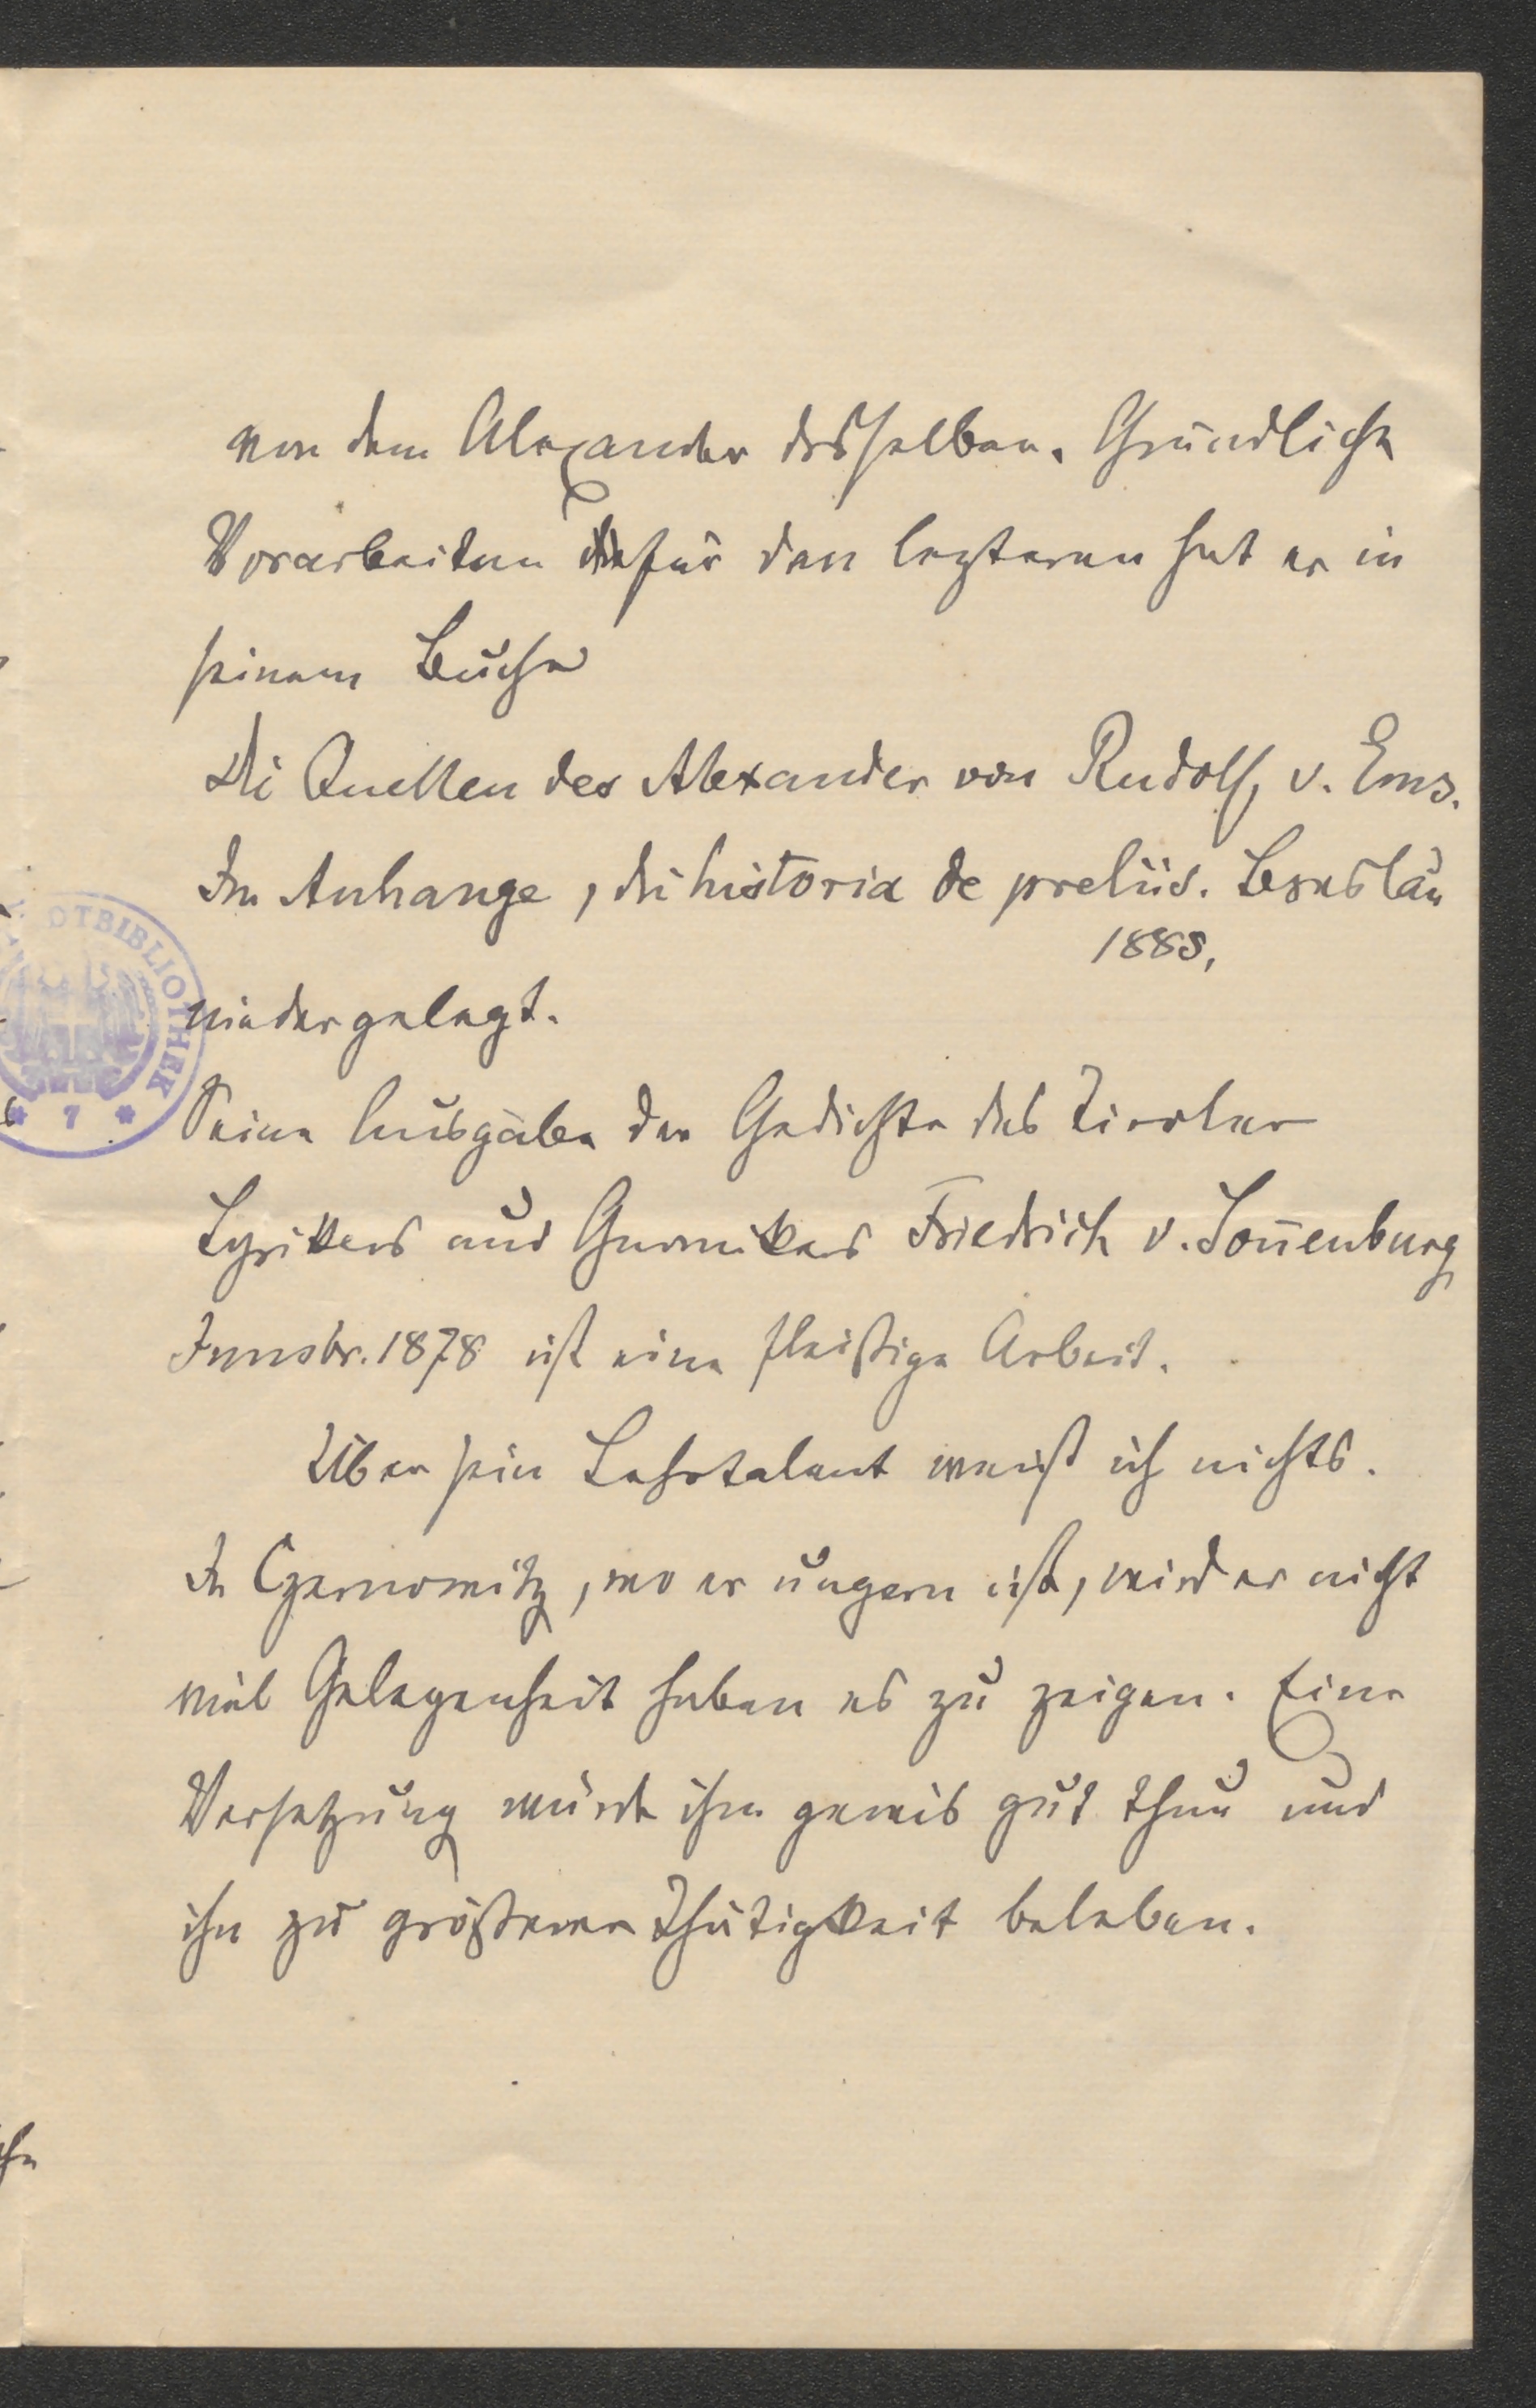 von dem Alexander desselben. Gründliche
Vorarbeiten für den lezteren hat er in
seinem Buche
Die Quellen des Alexander von Rudolf v. Ems.
Im Anhange, die historia de preliis. Breslau
1885,
niedergelegt.
Seine Ausgabe der Gedichte des Tiroler
Lyrikers und Gnomikers Friedrich v. Soñenburg
Innsbr. 1878 ist eine fleißige Arbeit.
Über sein Lehrtalent weiß ich nichts.
In Czernowitz, wo er ungern ist, wird er nicht
viel Gelegenheit haben es zu zeigen. Eine
Versetzung würde ihm gewis gut thun und
ihn zu größerer Thätigkeit beleben.
OTBIBLIOTHEK
* 7 *